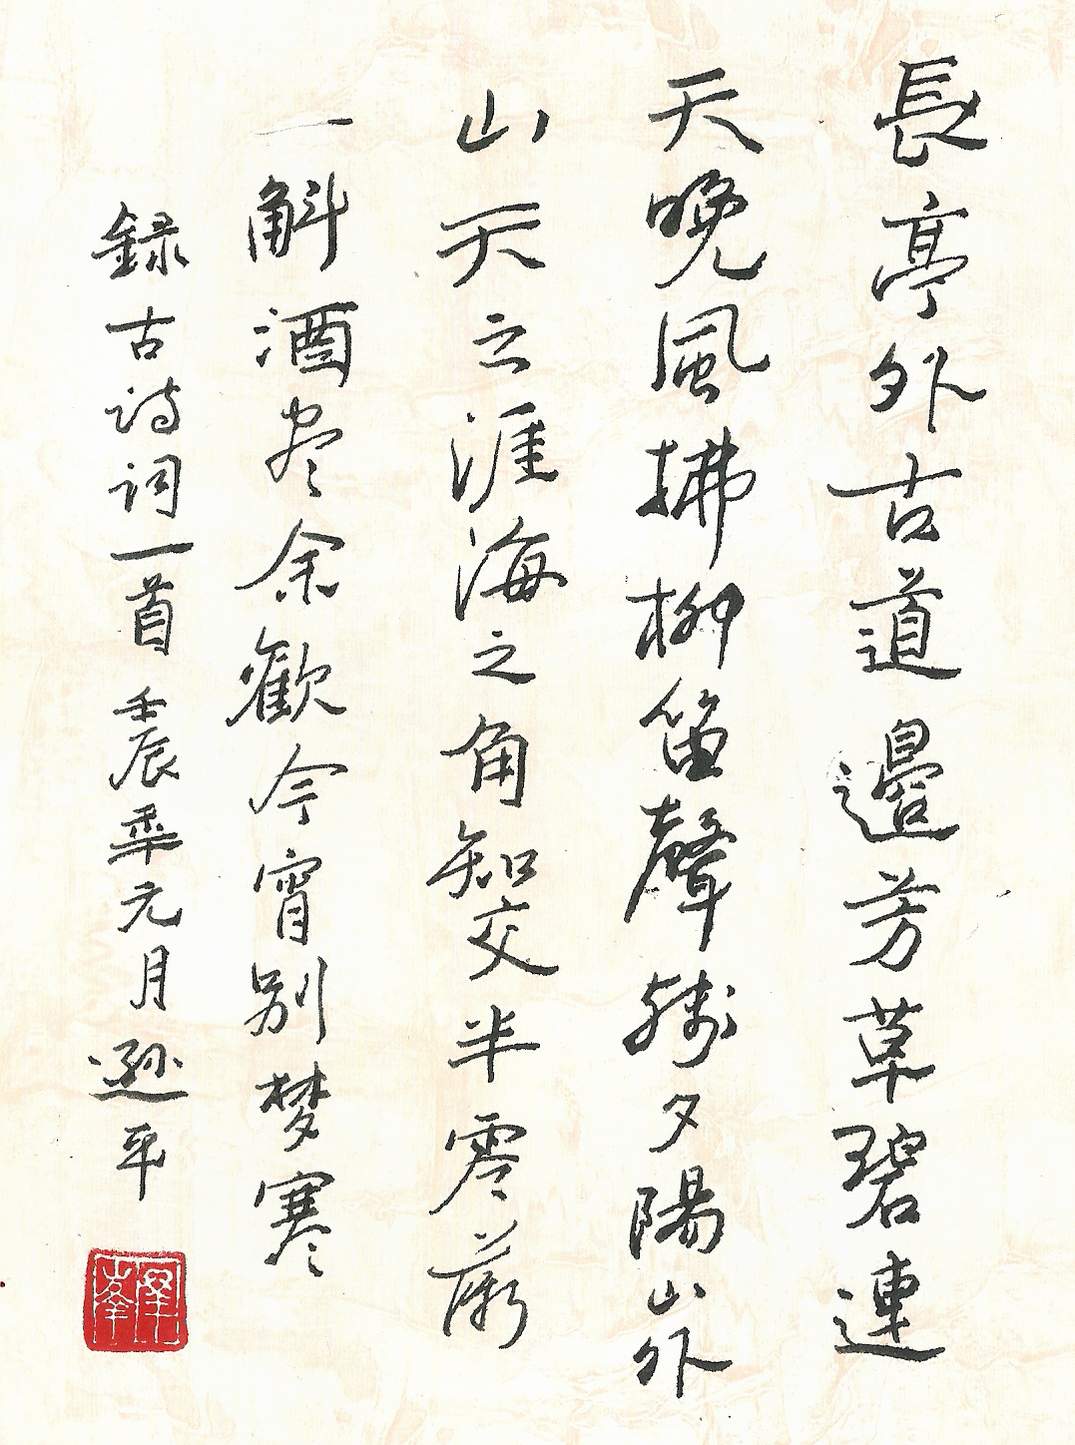 長亭外古道邊芳草碧連
天晚風拂柳笛聲殘夕陽山外
山天之涯海之角知交半零落
一斛酒尽余歡今宵别梦寒
録古诗词一首 壬辰年元月 遜平